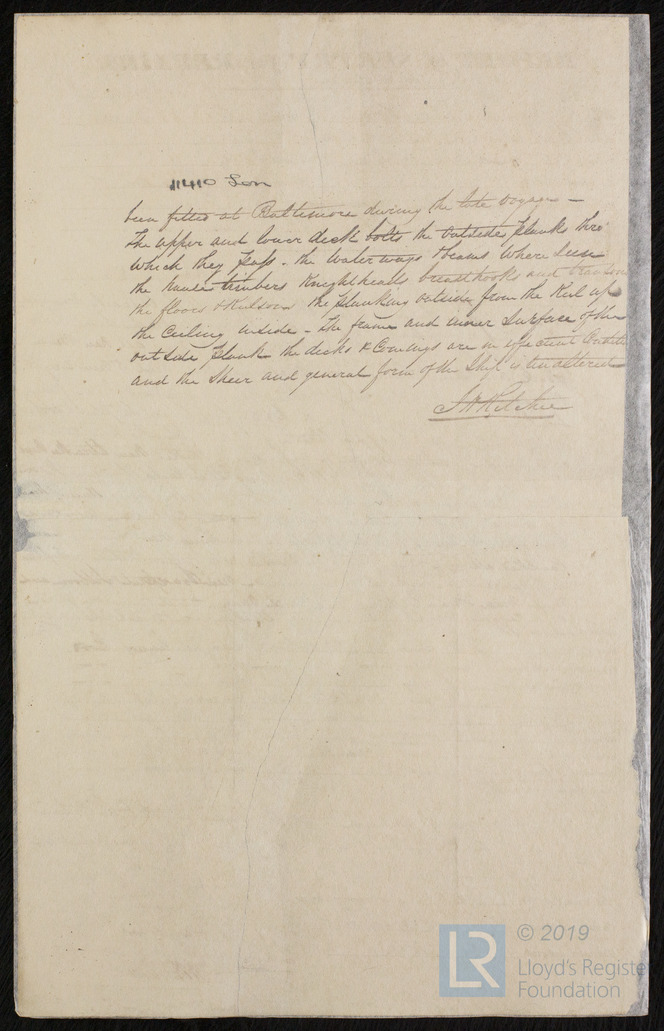 11410 Lon
been fitted at Baltimore during the late voyage –
The upper and lower deck bolts the outside planks thro'
which they pass – the Waterways & beams where seen
the hause timbers Knightheads breasthooks and transoms
the floors & Kelson the planking outside from the Keel up
the Ceiling inside – The frame and inner surface of the
outside plank the decks & Comings are in efficient Condition
and the Sheer and general form of the Ship is unaltered
J H Ritchie
LR
© 2019
Lloyd's Registe
Foundation